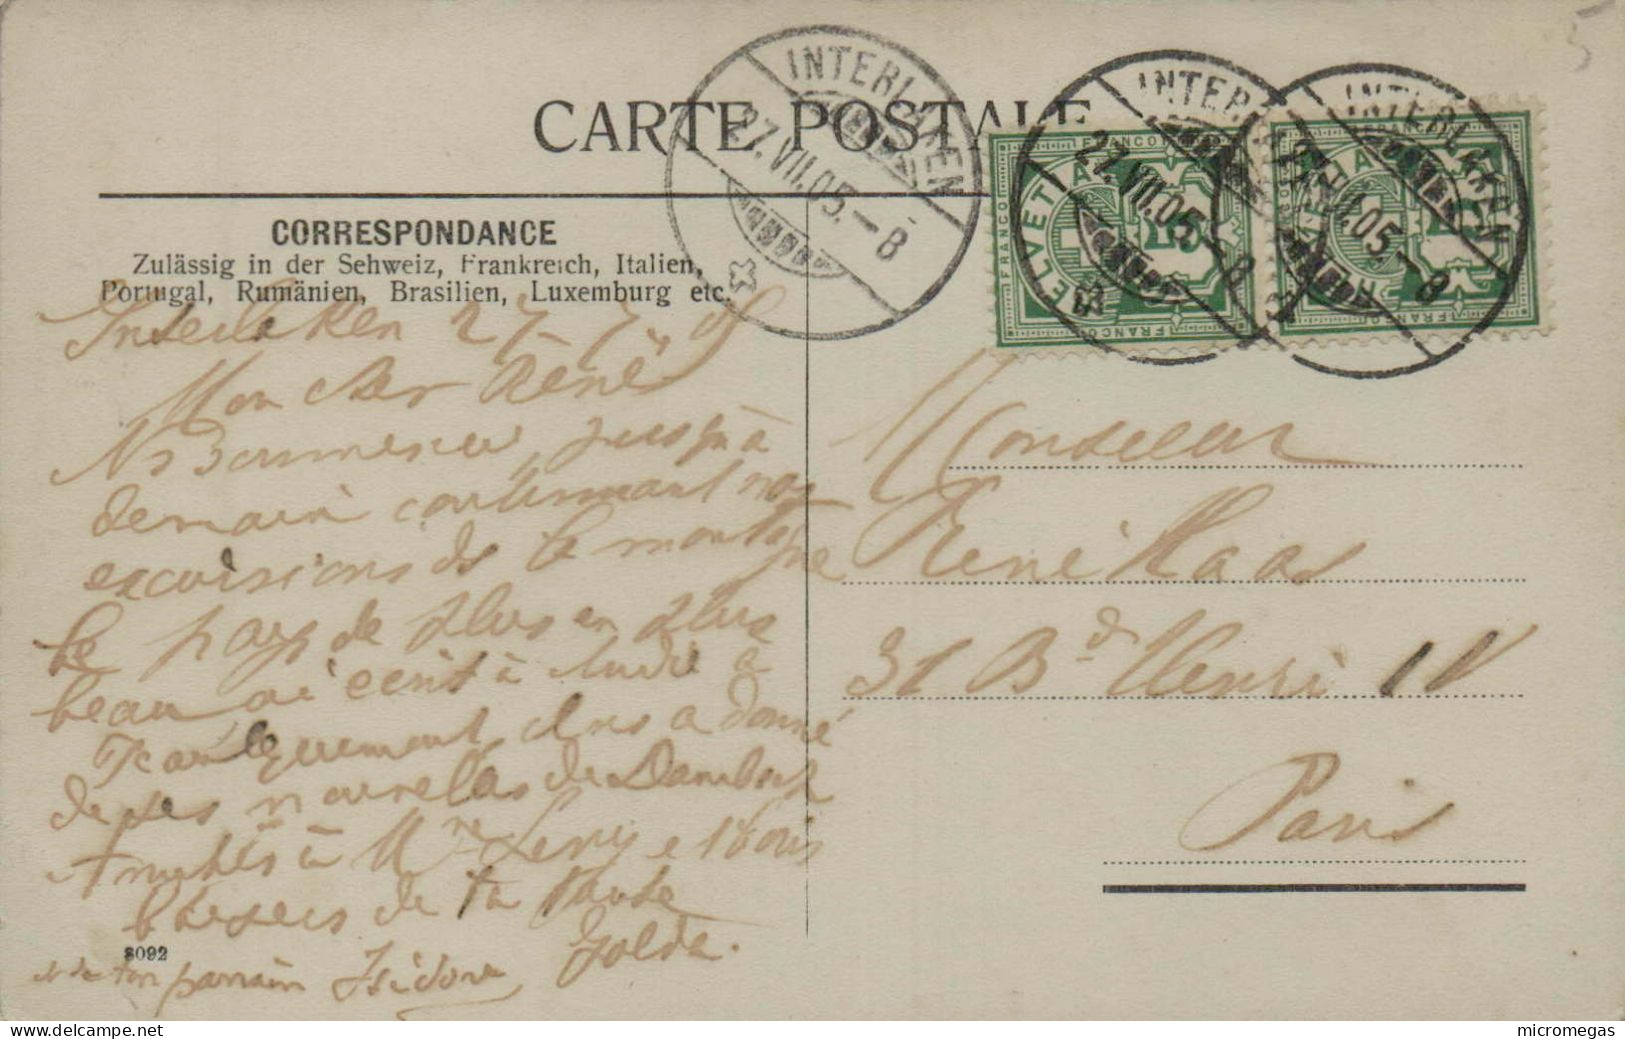 CARTE POSTALE
INTERLAKEN
27.VII.05.-8
INTERLAKEN
27.VII.05.-8
INTERLAKEN
27.VII.05.-8
HELVETIA
FRANCO
HELVETIA
FRANCO
5
CORRESPONDANCE
Zulässig in der Schweiz, Frankreich, Italien,
Portugal, Rumänien, Brasilien, Luxemburg etc.
Interlaken 27-7-05
Mon cher René
Ns jusqu'à
demain continuant nos
excursions ds la montagne
Le pays de plus en plus
beau ai écrit à André a
a donné
de ses nouvelles de Dambach
Amitiés à Mme Levy e 1000
baisers de ta tante
Golda.
et de ton parrain Isidore
8092
Monsieur
René Haas
31 Bd Henri IV
Paris
micromegas
www.delcampe.net